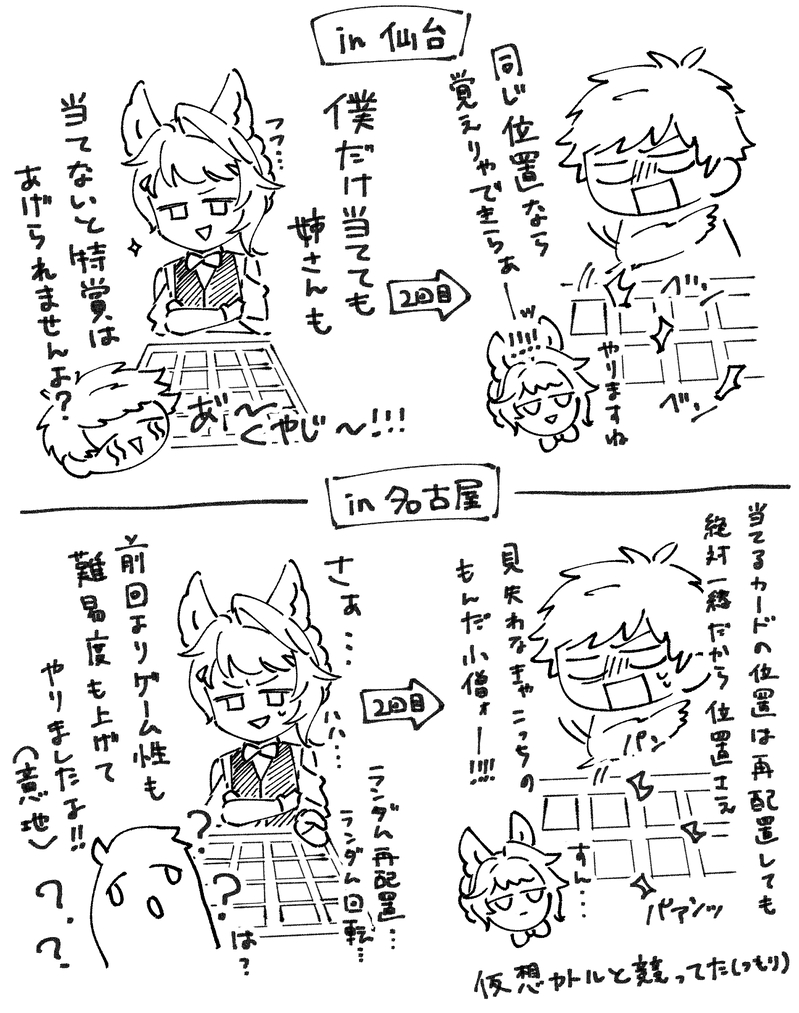 in 仙台
フフ…
僕だけ当てても
姉さんも
当てないと特賞は
あげられませんよ?
あ゛〜くやじ〜!!!
2回目
同じ位置なら
覚えりゃできらぁ
ー!!!!
ベシ
ベシ
やりますね
in 名古屋
さぁ…
ハハ…
前回よりゲーム性も
難易度も上げて
やりましたよ!!
(意地)
ランダム再配置…
ランダム回転…
?
?
は?
?
?
2回目
当てるカードの位置は再配置しても
絶対一緒だから位置さえ
見失わなきゃこっちの
もんだ小僧ォー!!!!
パン
パアンッ
すん…
仮想カトルと競ってた(つもり)